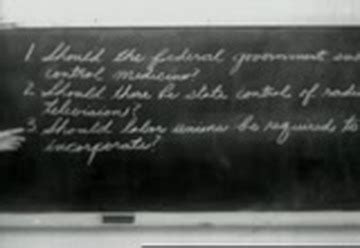 1 Should the federal government
control medicine?
2. Should there be state control of
television?
3 Should labor unions be required to
incorporate?